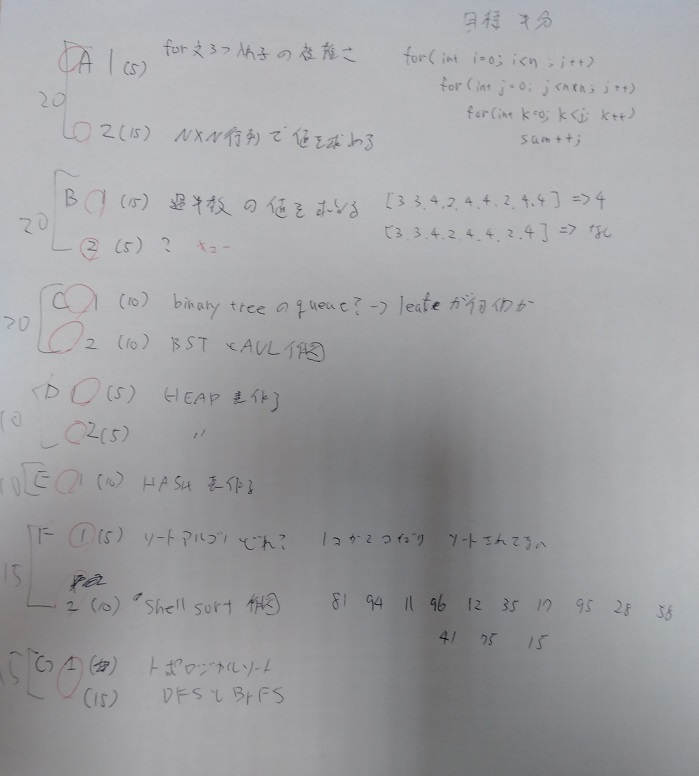 A 1 (5) for文3つ入れ子の複雑さ
for(int i=0; i<n; i++)
for(int j=0; j<n*n; j++)
for(int k=0; k<j; k++)
sum++;
20
2(15) N×N行列で値を求める
B 1 (15) 過半数の値を求める [3 3.4.2.4.4.2.4.4] => 4
[3,3.4.2.4.4.2.4] =>
20
2 (5) ?
C 1 (10) binary tree の queue? →
20
2 (10) BST とAVL 作図
D (5) HEAP を作る
10
2(5) 〃
10
E 1 (10) HASH を作る
F 1(5) ソートアルゴどれ? 1コか2コ ソートされてない
15
2 (10) Shell sort 作図 81 94 11 96 12 35 17 95 28 58
41 75 15
G 1 トポロジカルソート
(15) DFSとBrFS